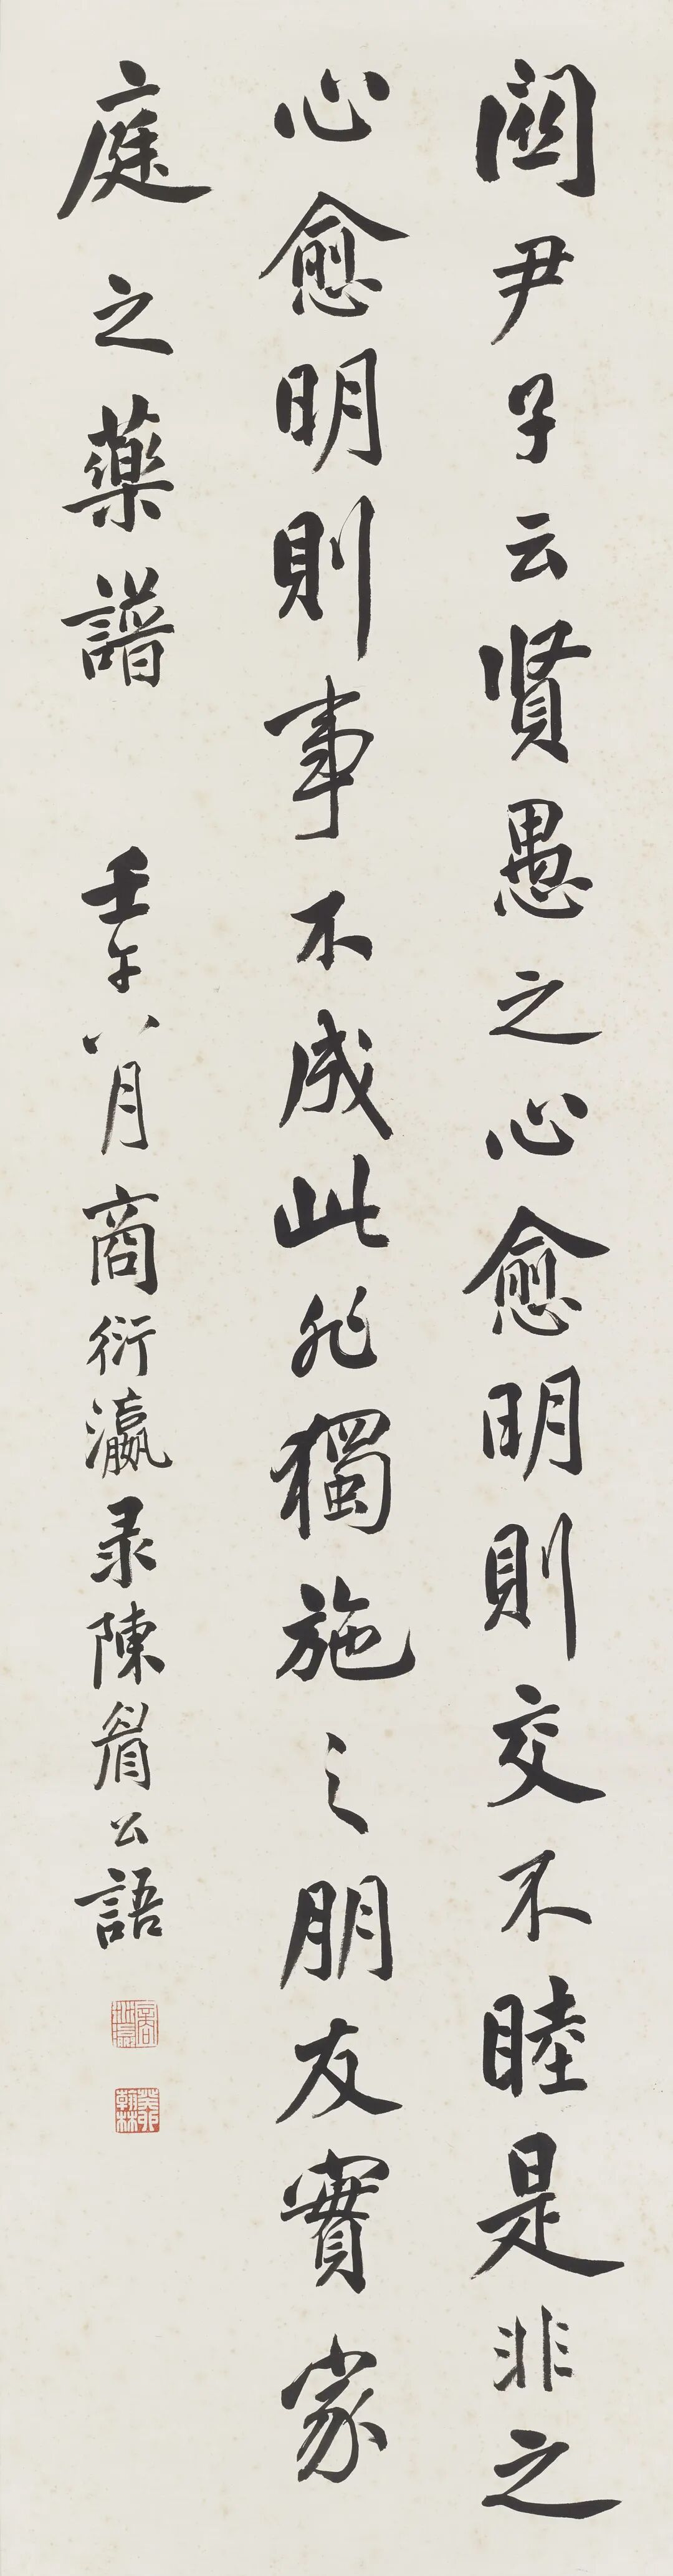 關尹子云賢愚之心愈明則交不睦是非之
心愈明則事不成此非獨施之朋友實家
庭之藥譜
壬午八月商衍瀛录陳眉公語
商衍瀛
癸卯翰林